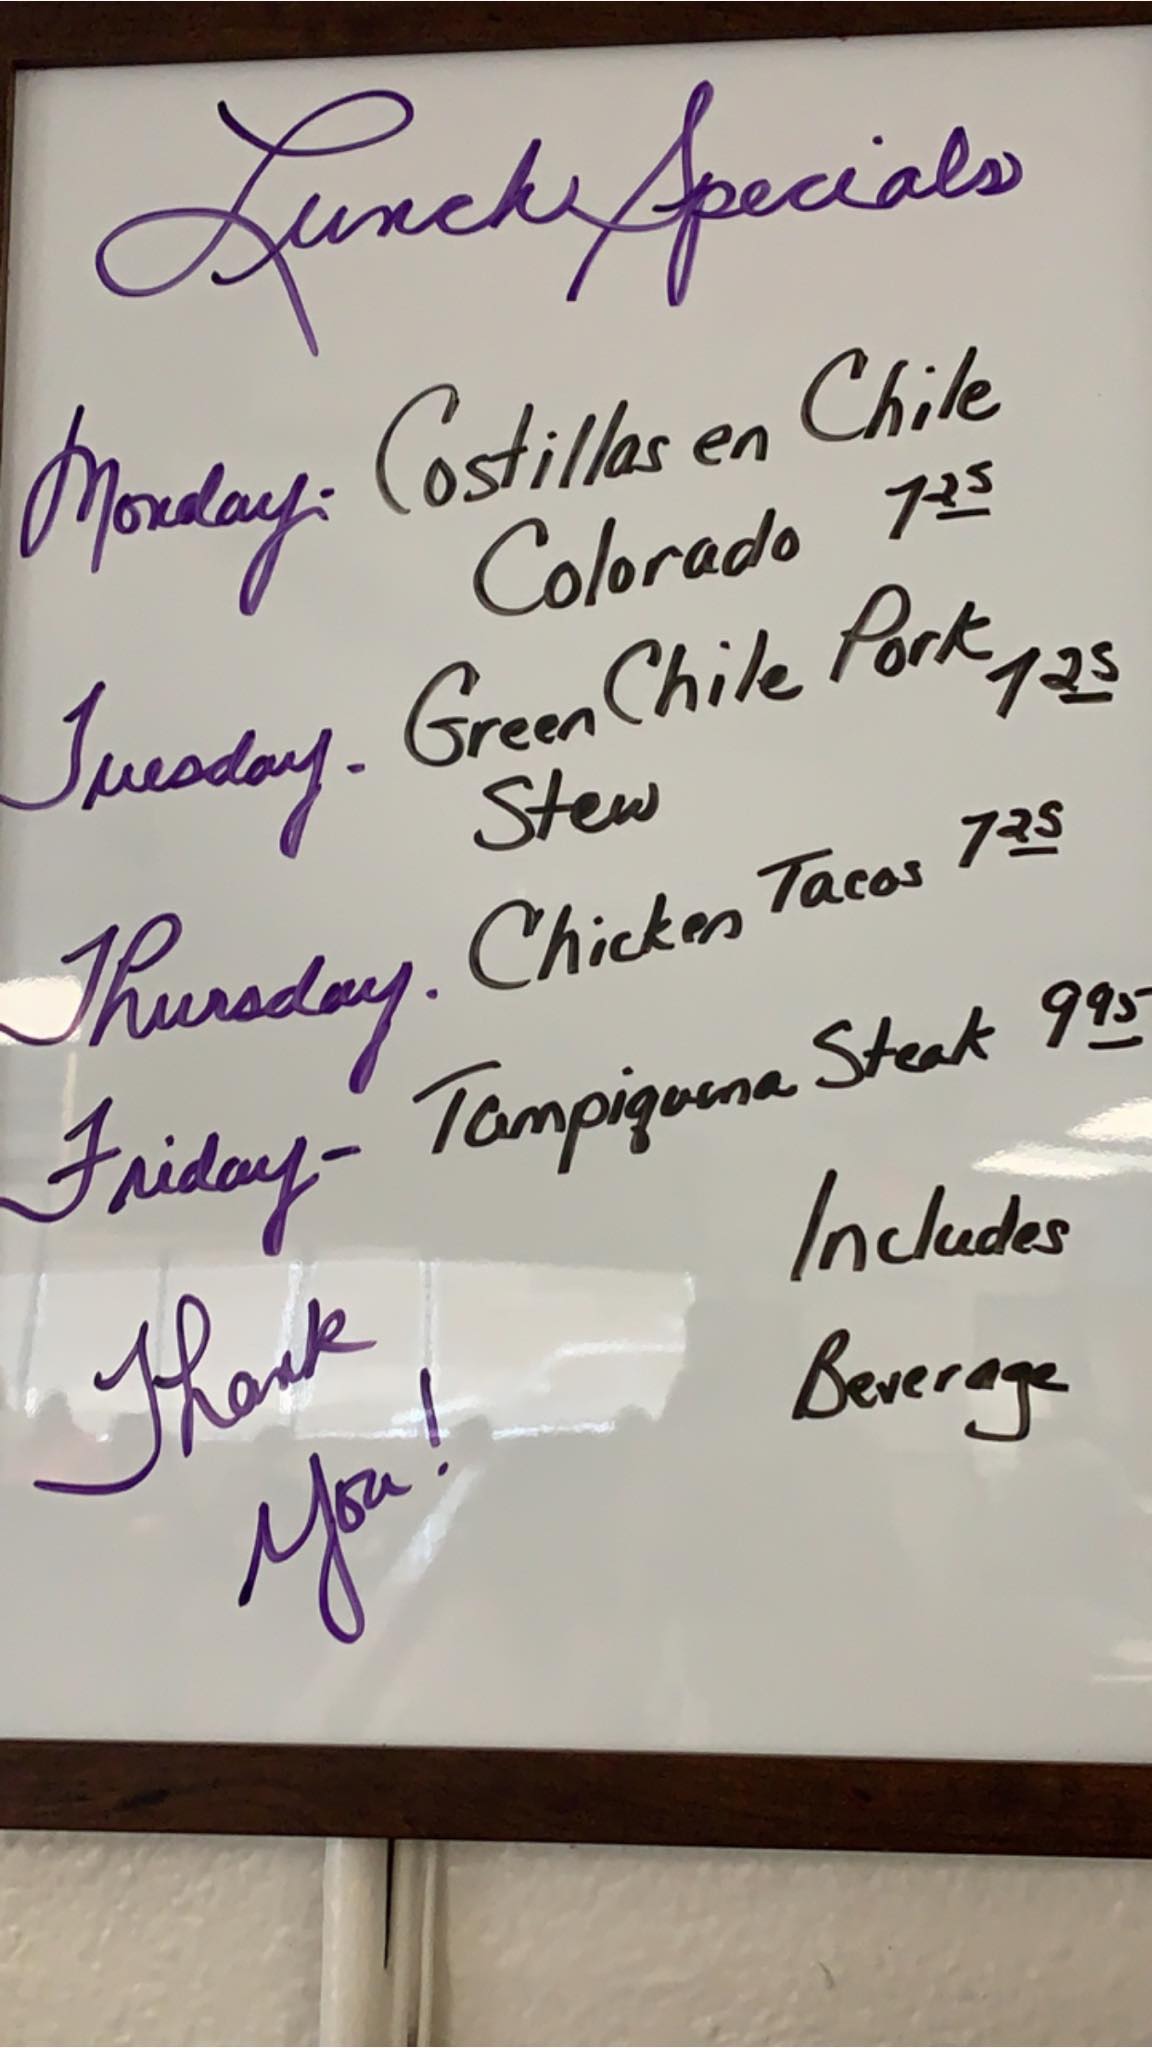 Lunch Specials
Monday: Costillas en Chile
Colorado 7.25
Tuesday. Green Chile Pork 7.25
Stew
Thursday. Chicken Tacos 7.25
Friday- Tampiquena Steak 9.95
Includes
Beverage
Thank
You!